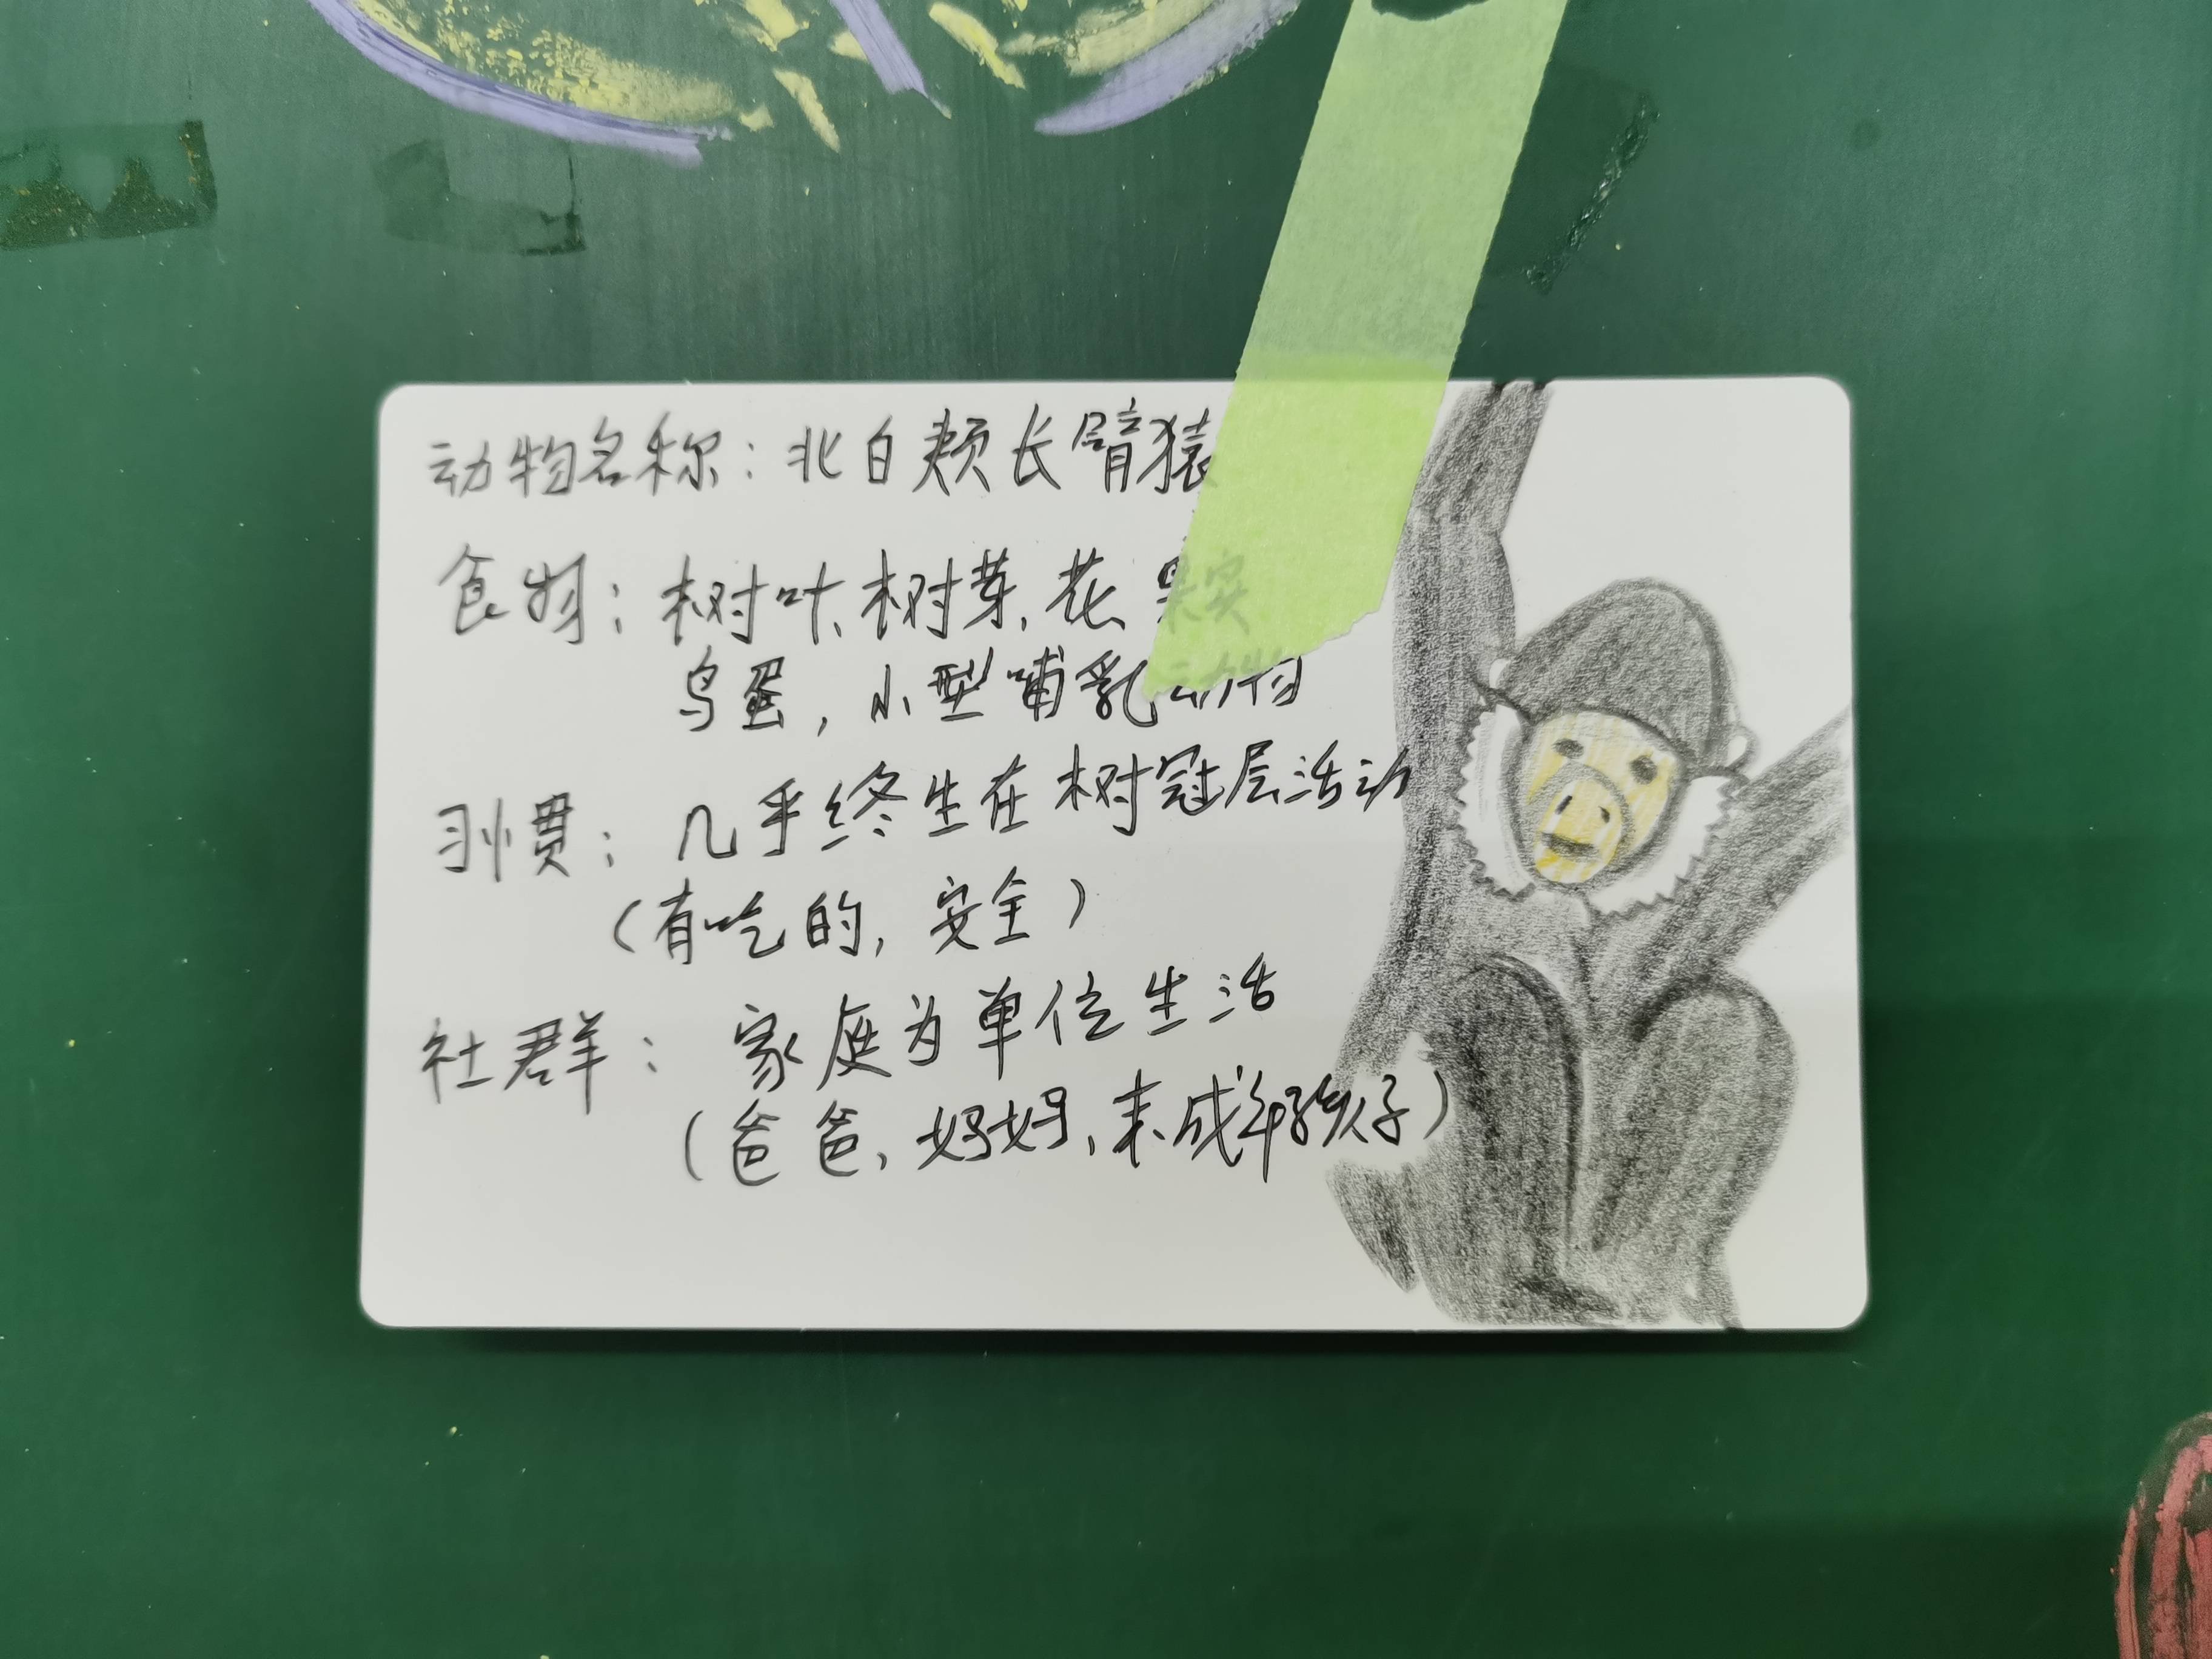 动物名称：北白颊长臂猿
食物：树叶、树芽、花、果实
鸟蛋，小型哺乳动物
习惯：几乎终生在树冠层活动
（有吃的，安全）
社群：家庭为单位生活
（爸爸、妈妈、未成年孩子）